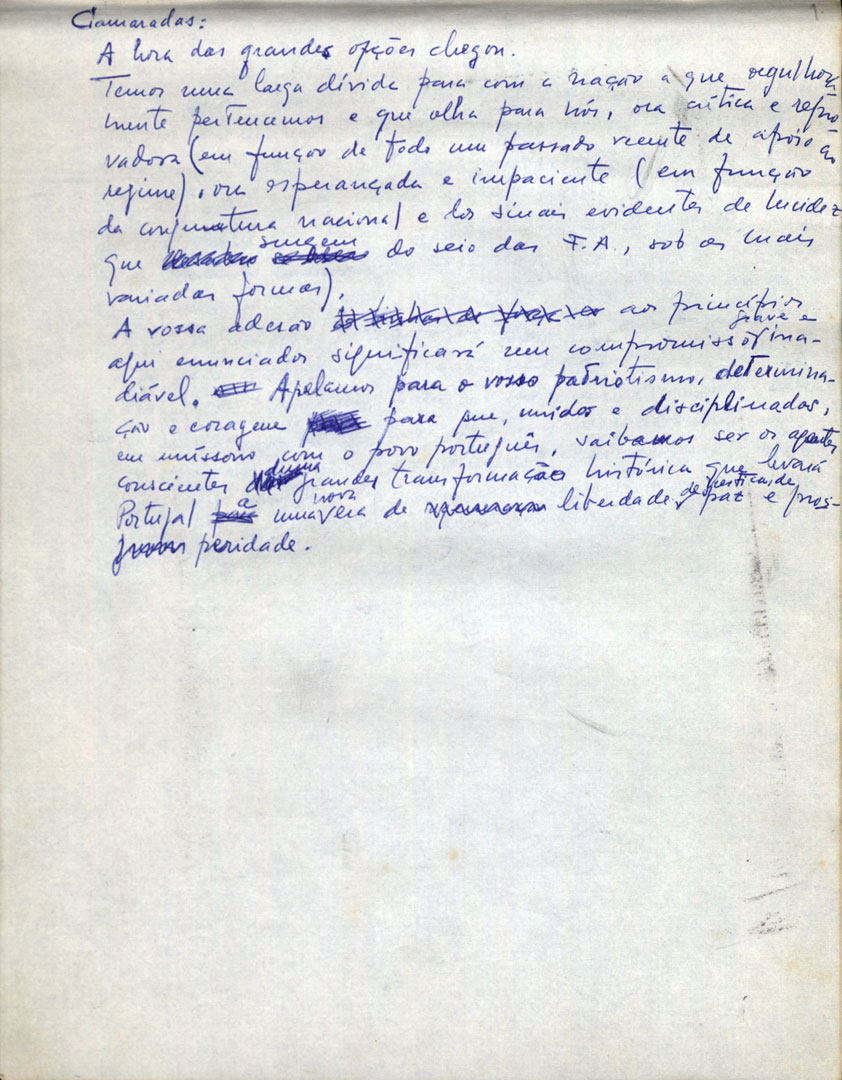 1
Camaradas:
A hora das grandes opções chegou.
Temos uma larga dívida para com a nação a que orgulhosa-
mente pertencemos e que olha para nós, ora crítica e repro-
vadora (em função de todo um passado recente de apoio ao
regime), ora esperançada e impaciente (em função
da conjuntura nacional e dos sinais evidentes de lucidez
que surgem do seio das F.A., sob as mais
variadas formas).
A vossa adesão aos princípios
aqui enunciados significará um compromisso grave e ina-
diável. Apelamos para o vosso patriotismo, determina-
ção e coragem para que, unidos e disciplinados,
em uníssono com o povo português, saibamos ser os agentes
conscientes duma grande transformação histórica que levará
Portugal a uma nova era de liberdade, de justiça, de paz e pros-
peridade.